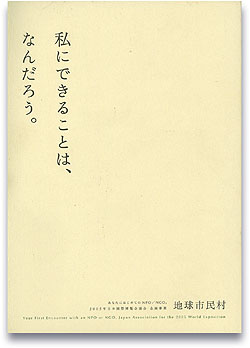 私にできることは、
なんだろう。
あなたにはじめてのNPO/NGO。
2005年日本国際博覧会協会 企画事業
地球市民村
Your First Encounter with an NPO or NGO. Japan Association for the 2005 World Exposition